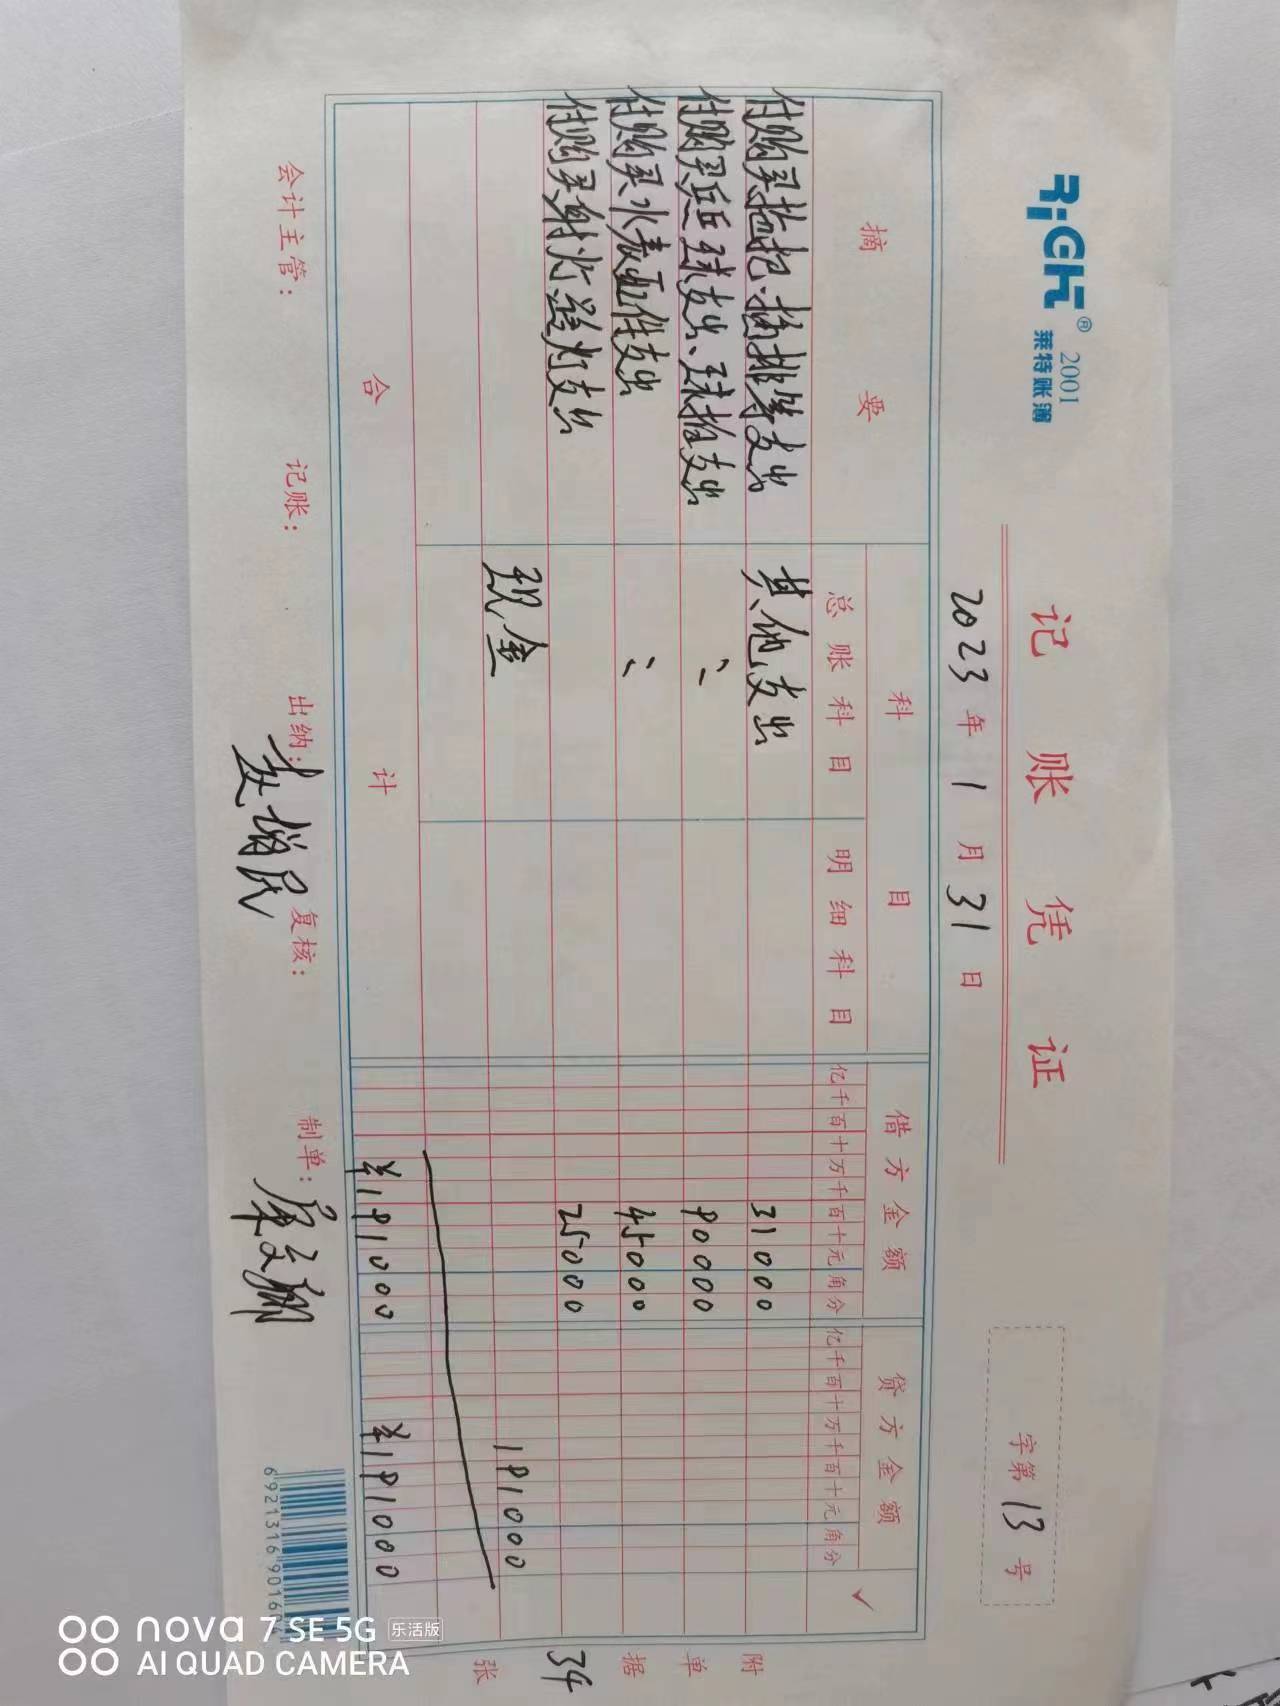 RiGHT® 2001
莱特账簿
记账凭证
2023年1月31日
字第13号
摘要
科目
借方金额
贷方金额
✓
总账科目
明细科目
亿千百十万千百十元角分
亿千百十万千百十元角分
付购买拖把.插排等支出 其他支出 31000
付购买乒乓球支出、球拍支出 〃 90000
付购买水表配件支出 〃 45000
付购买射灯 灯支出 25000
现金 191000
合计 ¥191000 ¥191000
附单据34张
会计主管:
记账:
出纳:
复核:
制单:
nova 7 SE 5G 乐活版
AI QUAD CAMERA